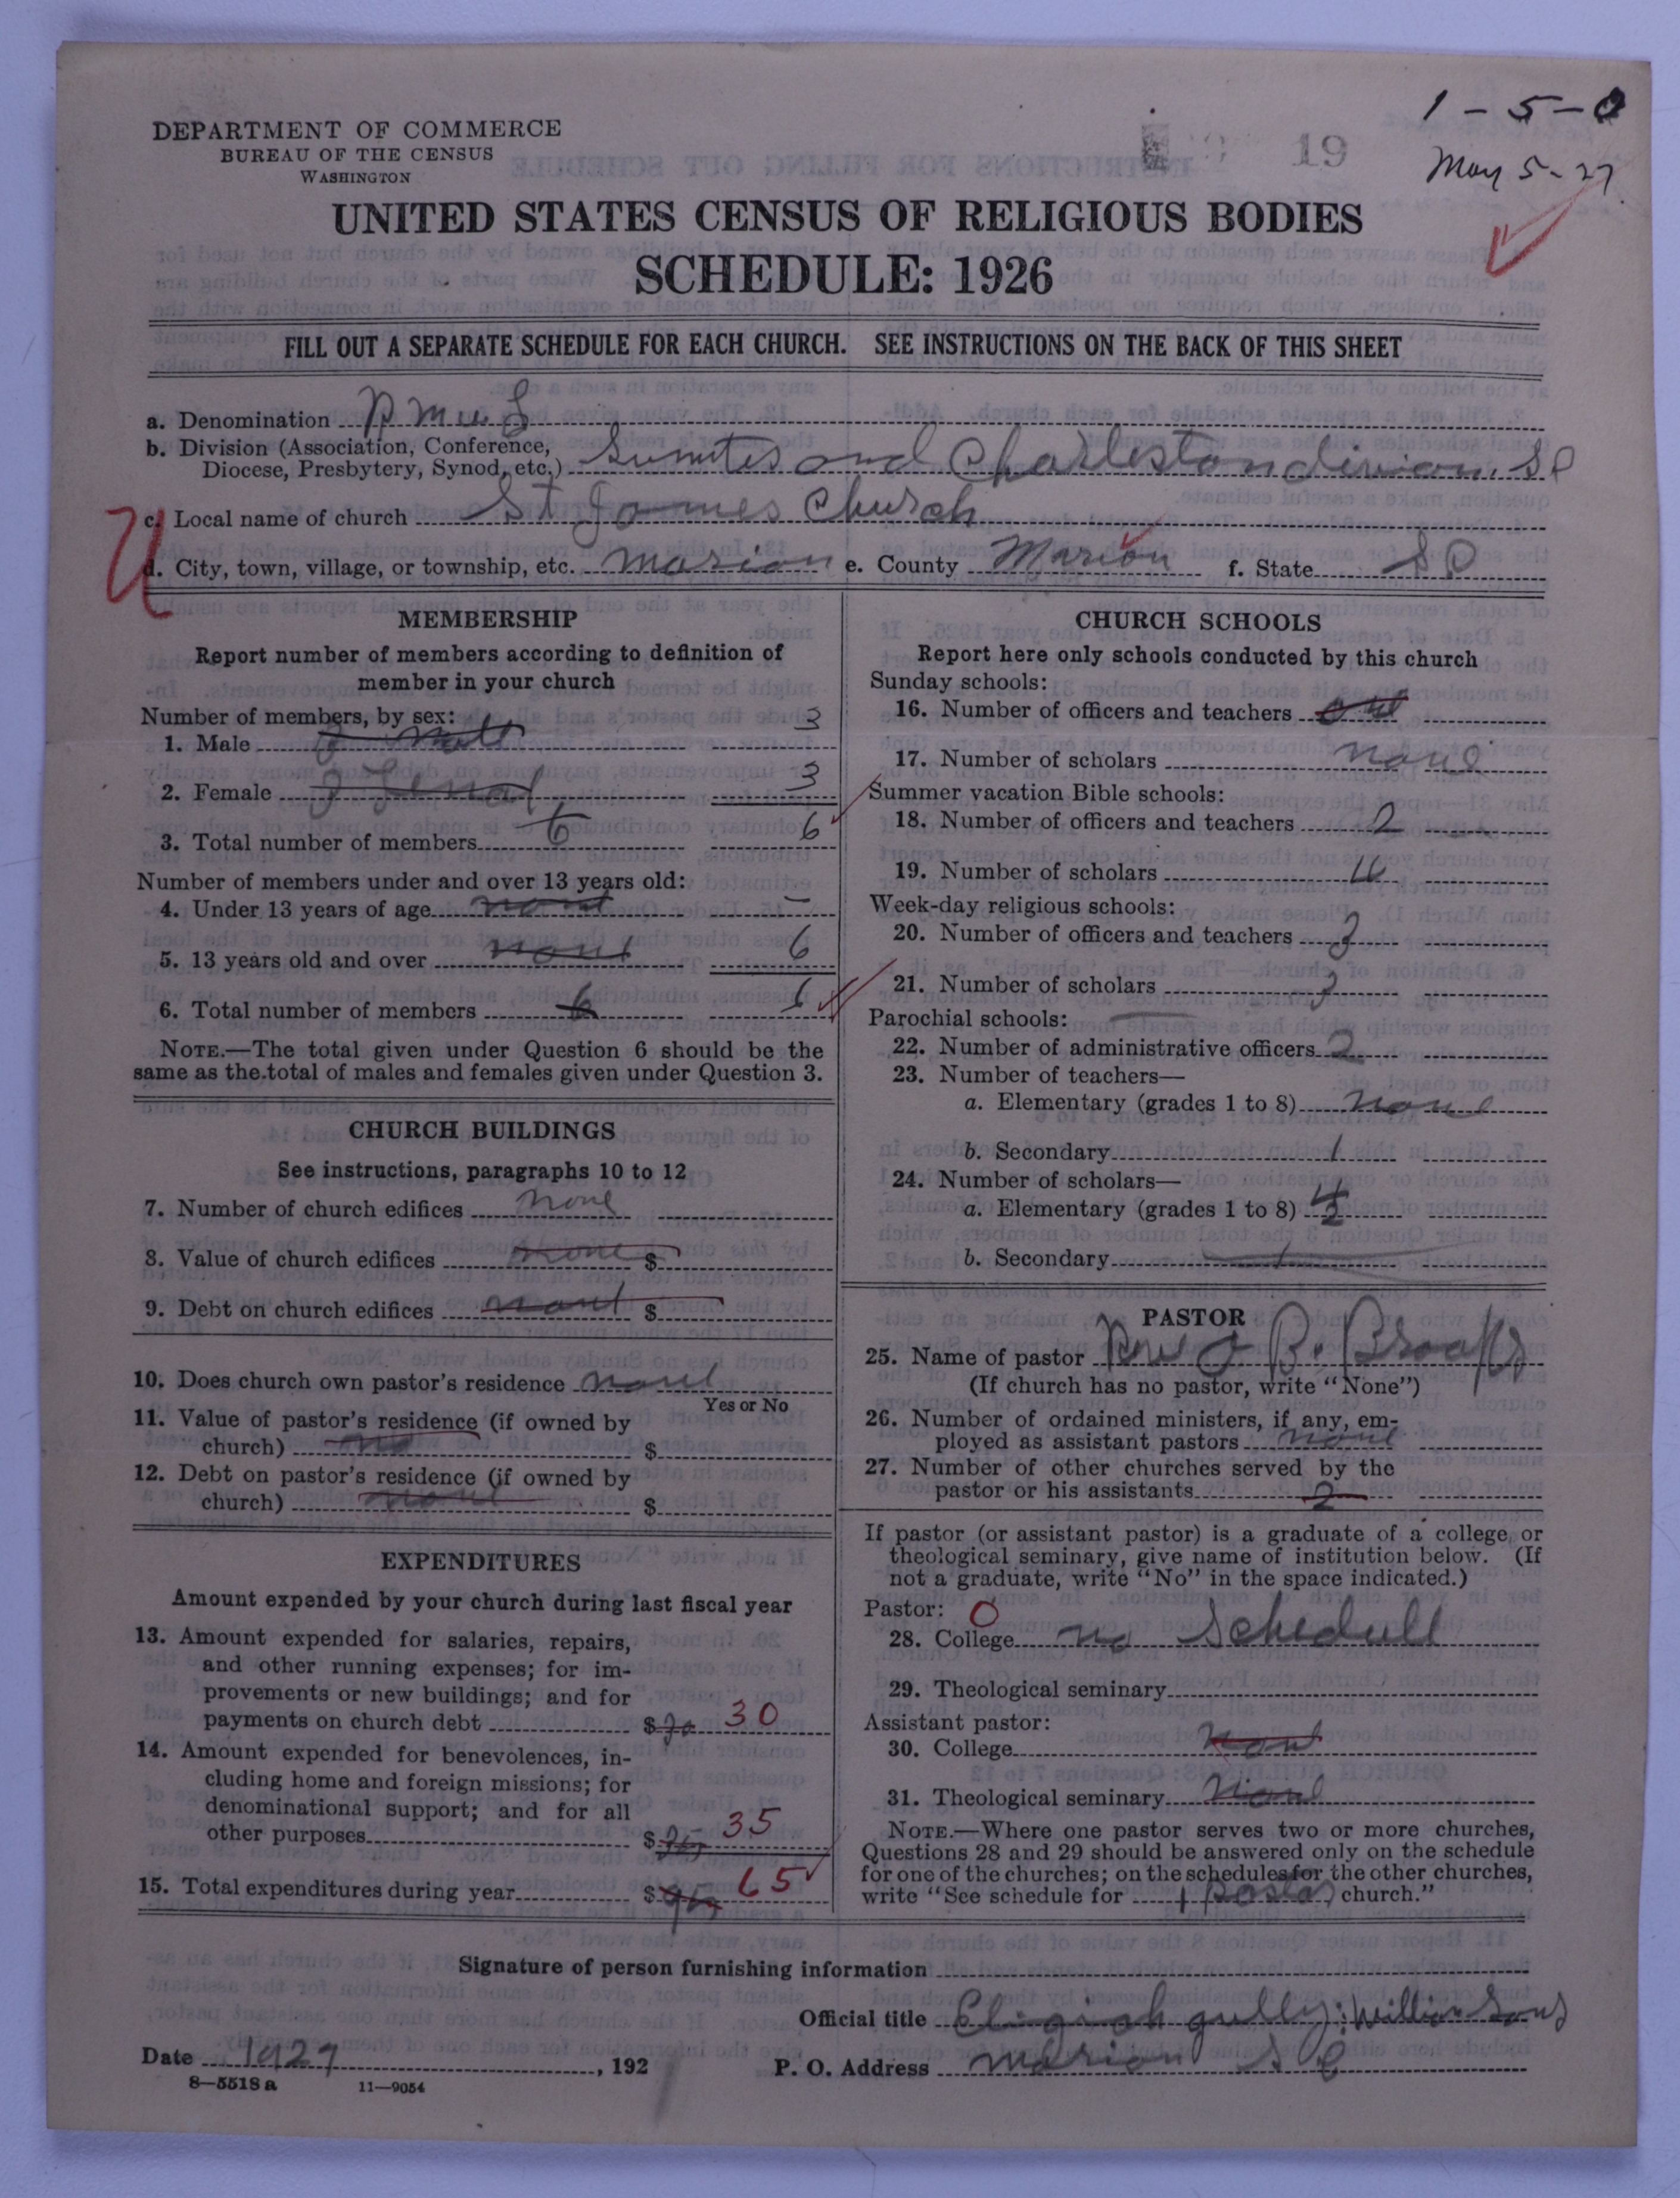 1-5-0
19
May 5-27
DEPARTMENT OF COMMERCE
BUREAU OF THE CENSUS
WASHINGTON
UNITED STATES CENSUS OF RELIGIOUS BODIES
SCHEDULE: 1926
FILL OUT A SEPARATE SCHEDULE FOR EACH CHURCH. SEE INSTRUCTIONS ON THE BACK OF THIS SHEET
a. Denomination
b. Division (Association, Conference,
Diocese, Presbytery, Synod, etc.) and Charleston division. SC
c. Local name of church St James Church
d. City, town, village, or township, etc. Marion e. County Marion f. State SC
MEMBERSHIP
Report number of members according to definition of
member in your church
Number of members, by sex:
1. Male 3
2. Female 3
3. Total number of members 6 6
Number of members under and over 13 years old:
4. Under 13 years of age none –
5. 13 years old and over none 6
6. Total number of members 6 6
NOTE.—The total given under Question 6 should be the
same as the total of males and females given under Question 3.
CHURCH BUILDINGS
See instructions, paragraphs 10 to 12
7. Number of church edifices none
8. Value of church edifices none $
9. Debt on church edifices none $
10. Does church own pastor's residence none
Yes or No
11. Value of pastor's residence (if owned by
church) no $
12. Debt on pastor's residence (if owned by
church) none $
EXPENDITURES
Amount expended by your church during last fiscal year
13. Amount expended for salaries, repairs,
and other running expenses; for im-
provements or new buildings; and for
payments on church debt $ 30
14. Amount expended for benevolences, in-
cluding home and foreign missions; for
denominational support; and for all
other purposes $ 35
15. Total expenditures during year $ 65
CHURCH SCHOOLS
Report here only schools conducted by this church
Sunday schools:
16. Number of officers and teachers
17. Number of scholars none
Summer vacation Bible schools:
18. Number of officers and teachers 2
19. Number of scholars
Week-day religious schools:
20. Number of officers and teachers 3
21. Number of scholars 3
Parochial schools:
22. Number of administrative officers 2
23. Number of teachers—
a. Elementary (grades 1 to 8) none
b. Secondary 1
24. Number of scholars—
a. Elementary (grades 1 to 8)
b. Secondary 1
PASTOR
25. Name of pastor
(If church has no pastor, write "None")
26. Number of ordained ministers, if any, em-
ployed as assistant pastors none
27. Number of other churches served by the
pastor or his assistants 2
If pastor (or assistant pastor) is a graduate of a college or
theological seminary, give name of institution below. (If
not a graduate, write "No" in the space indicated.)
Pastor: 0
28. College no Schedull
29. Theological seminary
Assistant pastor:
30. College none
31. Theological seminary none
NOTE.—Where one pastor serves two or more churches,
Questions 28 and 29 should be answered only on the schedule
for one of the churches; on the schedules for the other churches,
write "See schedule for 1 Pastor church."
Signature of person furnishing information
Official title
Date 1927, 192 P. O. Address Marion SC
8—5518a 11—9054